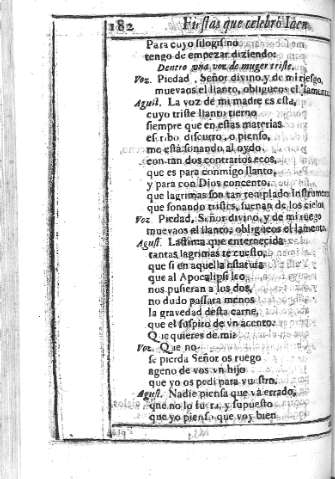 182 Fiestas que celebrò Iaen
Para cuyo silogismo
tengo de empezar diziendo:
Dentro una voz de muger triste.
Voz. Piedad, Señor divino, y de mi riesgo,
muevaos el llanto, obligueos el lamento.
Agust. La voz de mi madre es esta,
cuyo triste llanto tierno
siempre que en estas materias
escribo, discurro, o pienso,
me està sonando al oydo
con tan dos contrarios ecos,
que es para conmigo llanto,
y para con Dios concento;
que lagrimas son tan templado instrumento
que sonando tristes, suenan de los cielos
Voz Piedad, Señor divino, y de mi ruego
muevaos el llanto, obligueos el lamento.
Agust. Lastima que enternecida
tantas lagrimas te cuesto,
que si en aquella estatua
que al Apocalipsi leo,
nos pusieran a los dos,
no dudo passara menos
la gravedad desta carne,
que el suspiro de vn acento.
Que quieres de mi?
Voz. Que no
se pierda Señor os ruego
ageno de vos vn hijo
que yo os pedi para vuestro.
Agust. Nadie piensa que và errado,
que no lo fuera, y supuesto
que yo pienso que voy bien